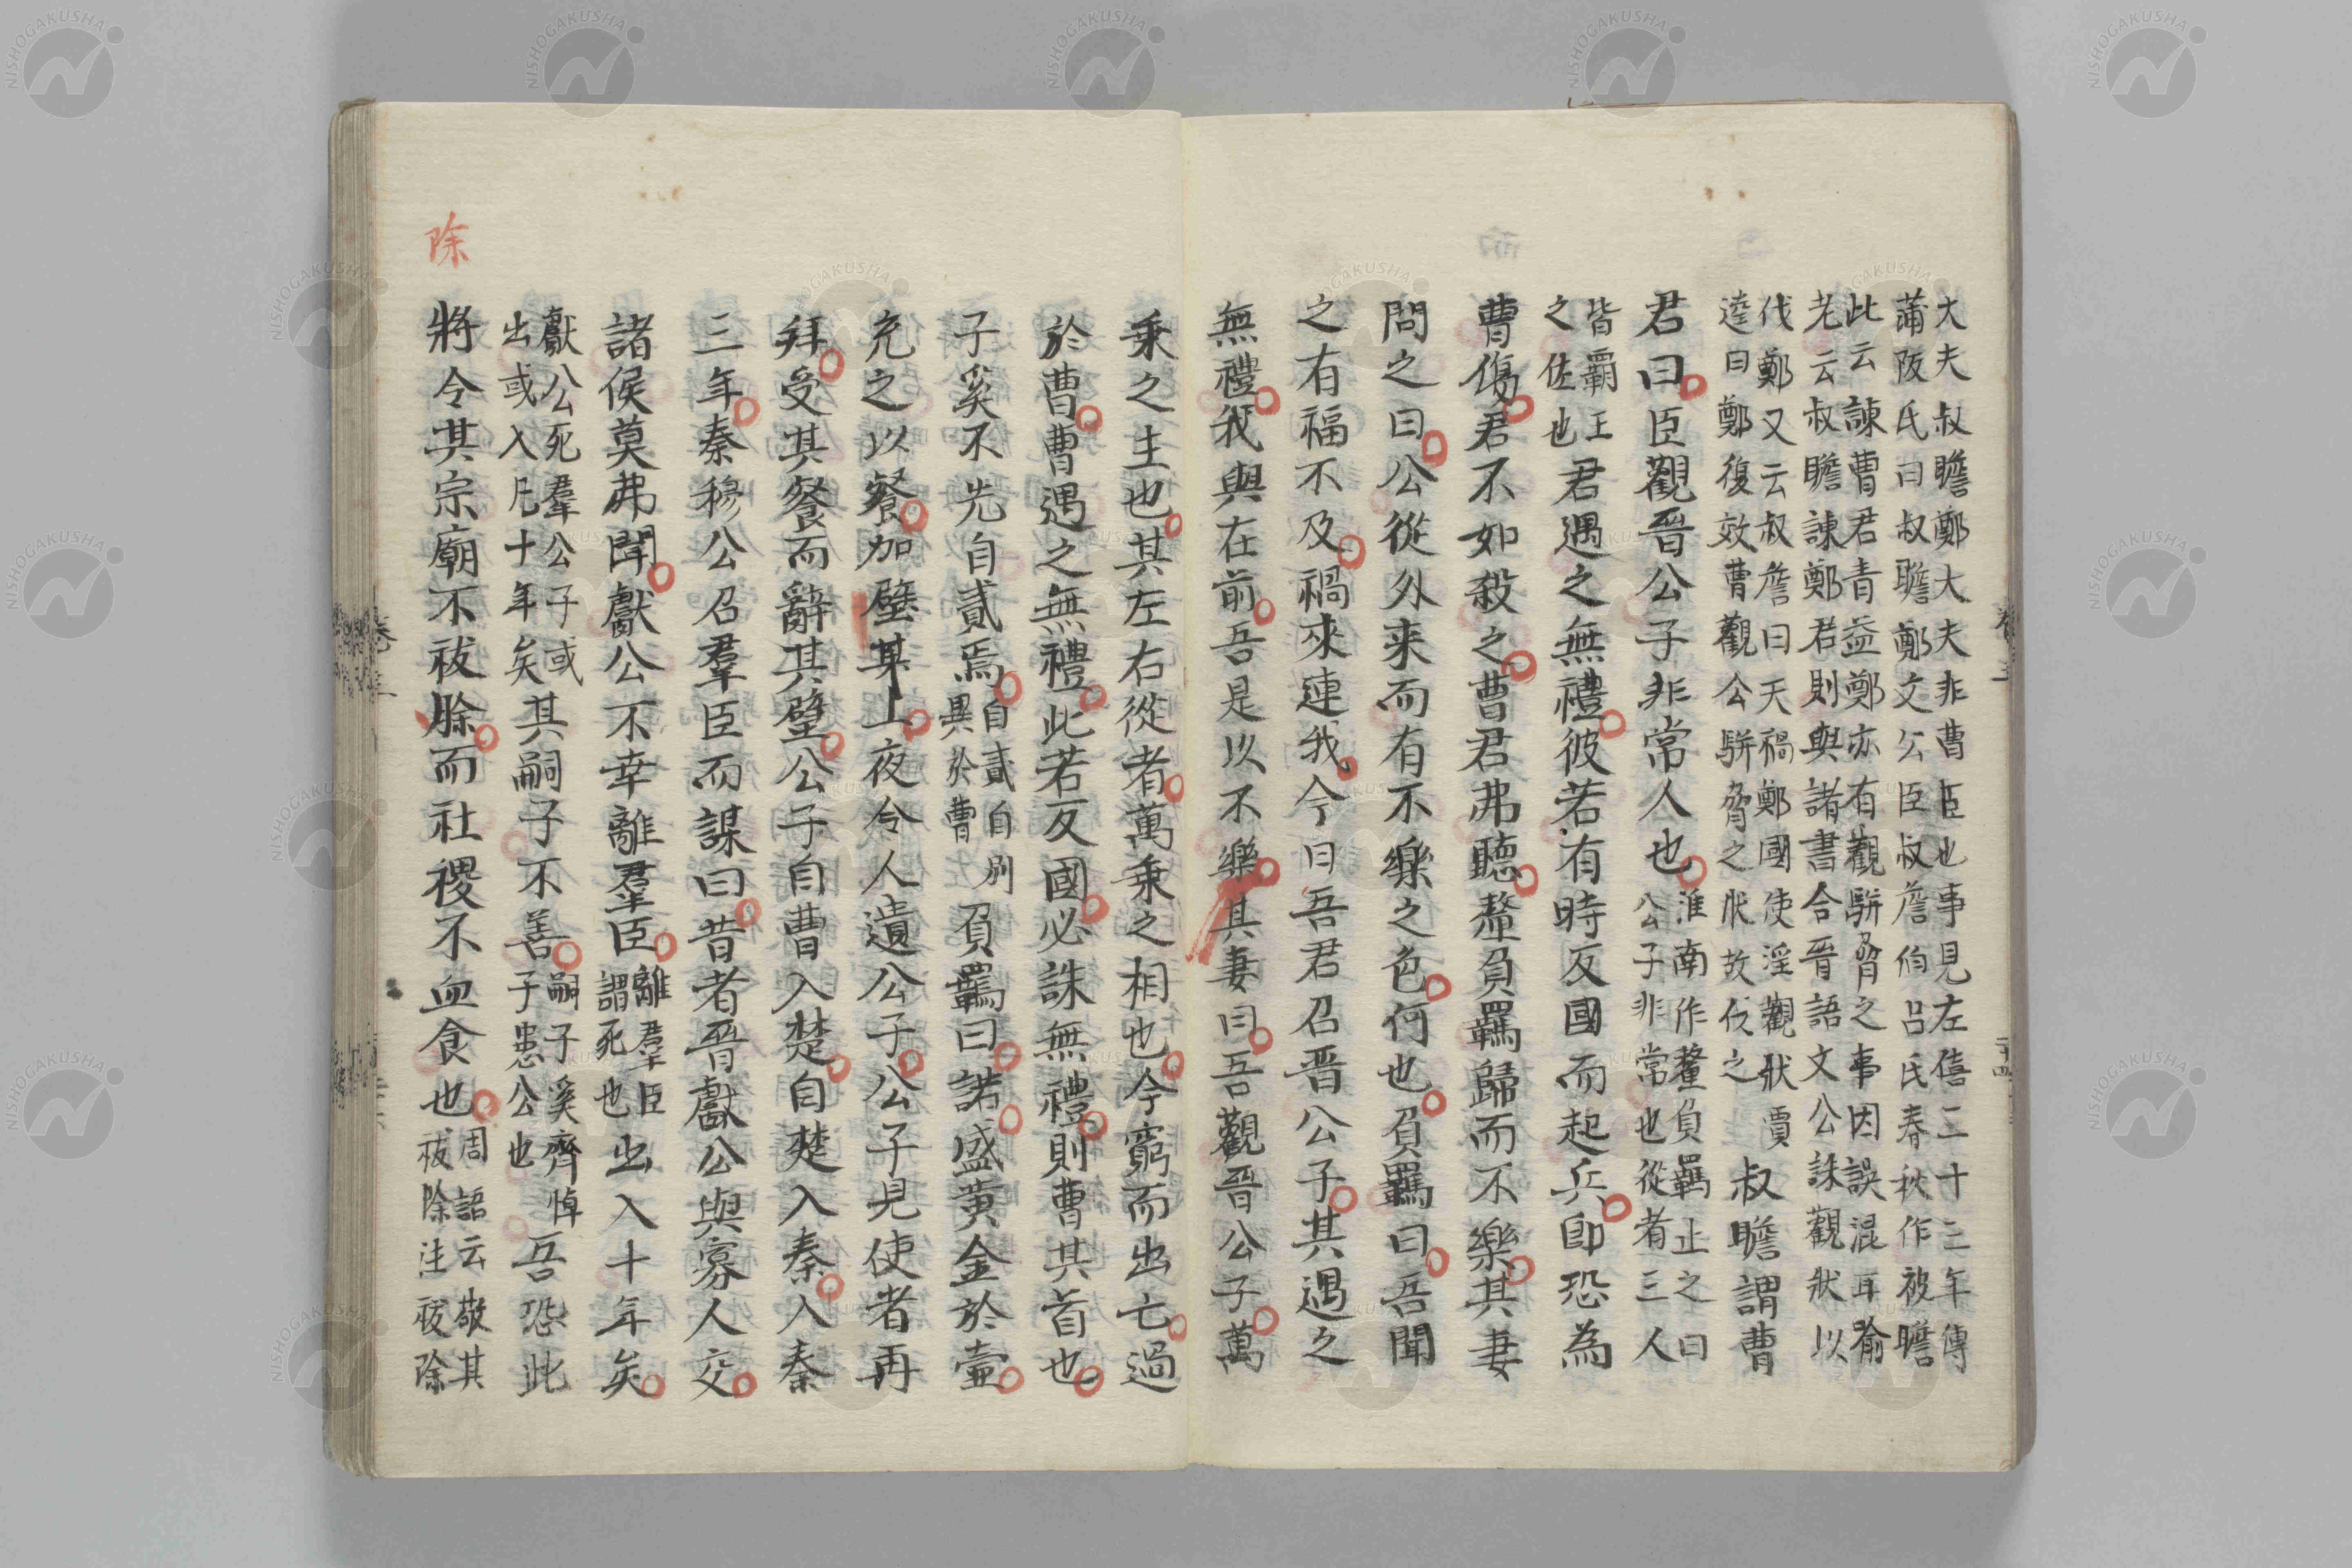 大夫叔瞻鄭大夫非曹臣也事見左僖二十三年傳
蒲阪氏曰叔瞻鄭文公臣叔詹伯呂氏春秋作被瞻
此云諫曹君青益鄭亦有觀駢脅之事因誤混耳喻
老云叔瞻諫鄭君則與諸書合晋語文公誅觀狀以
伐鄭又云叔詹曰天禍鄭國使淫觀狀賈
逵曰鄭復效曹觀公駢脅之狀故伐之
叔瞻謂曹
君曰臣觀晋公子非常人也
淮南作釐負羈止之曰
公子非常也從者三人
皆霸王
之佐也
君遇之無禮彼若有時反國而起兵卽恐為
曹傷君不如殺之曹君弗聽釐負羈歸而不樂其妻
問之曰公從外来而有不樂之色何也負羈曰吾聞
之有福不及禍來連我今日吾君召晋公子其遇之
無禮我與在前吾是以不樂其妻曰吾觀晋公子萬
乗之主也其左右從者萬乗之相也今窮而出亡過
於曹曹遇之無禮此若反國必誅無禮則曹其首也
子奚不先自貳焉
自貳自別
異於曹
負羈曰諾盛黄金於壷
充之以餐加璧其上夜令人遺公子公子見使者再
拜受其餐而辭其璧公子自曹入楚自楚入秦入秦
三年秦穆公召羣臣而謀曰昔者晋獻公與寡人交
諸侯莫弗聞獻公不幸離羣臣
離羣臣
謂死也
出入十年矣
獻公死羣公子或
出或入凡十年矣
其嗣子不善
嗣子奚齊悼
子惠公也
吾恐此
除
將令其宗廟不祓除而社稷不血食也
周語云敬其
祓除注祓除
卷三
二十四